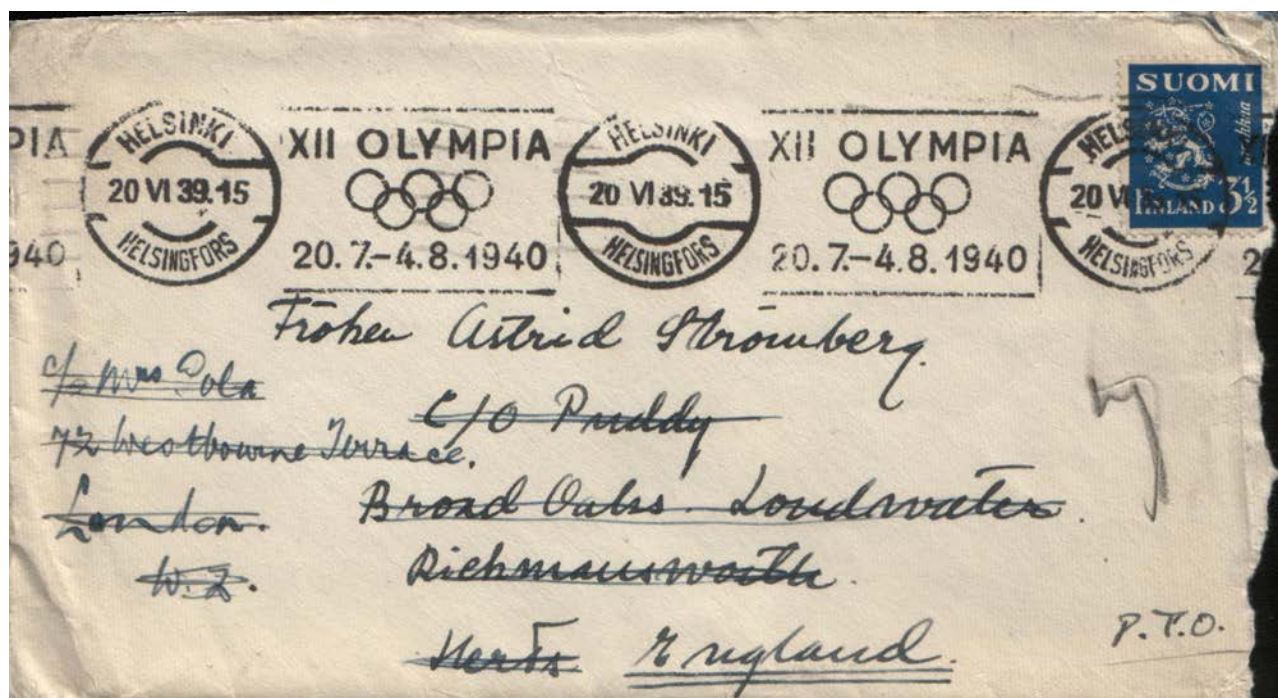 SUOMI
markkaa
3½
FINLAND
PIA
940
HELSINKI
20 VI 39.15
HELSINGFORS
XII OLYMPIA
20.7.–4.8.1940
HELSINKI
20 VI 39.15
HELSINGFORS
XII OLYMPIA
20.7.–4.8.1940
HELSINKI
20 VI
HELSINGFORS
2
Fröken Astrid Strömberg.
c/o Mrs
72 Westbourne Terrace.
London.
W.2.
C/O Puddy
Broad Oaks Loudwater.
Richmansworth.
Herts. England.
P.T.O.